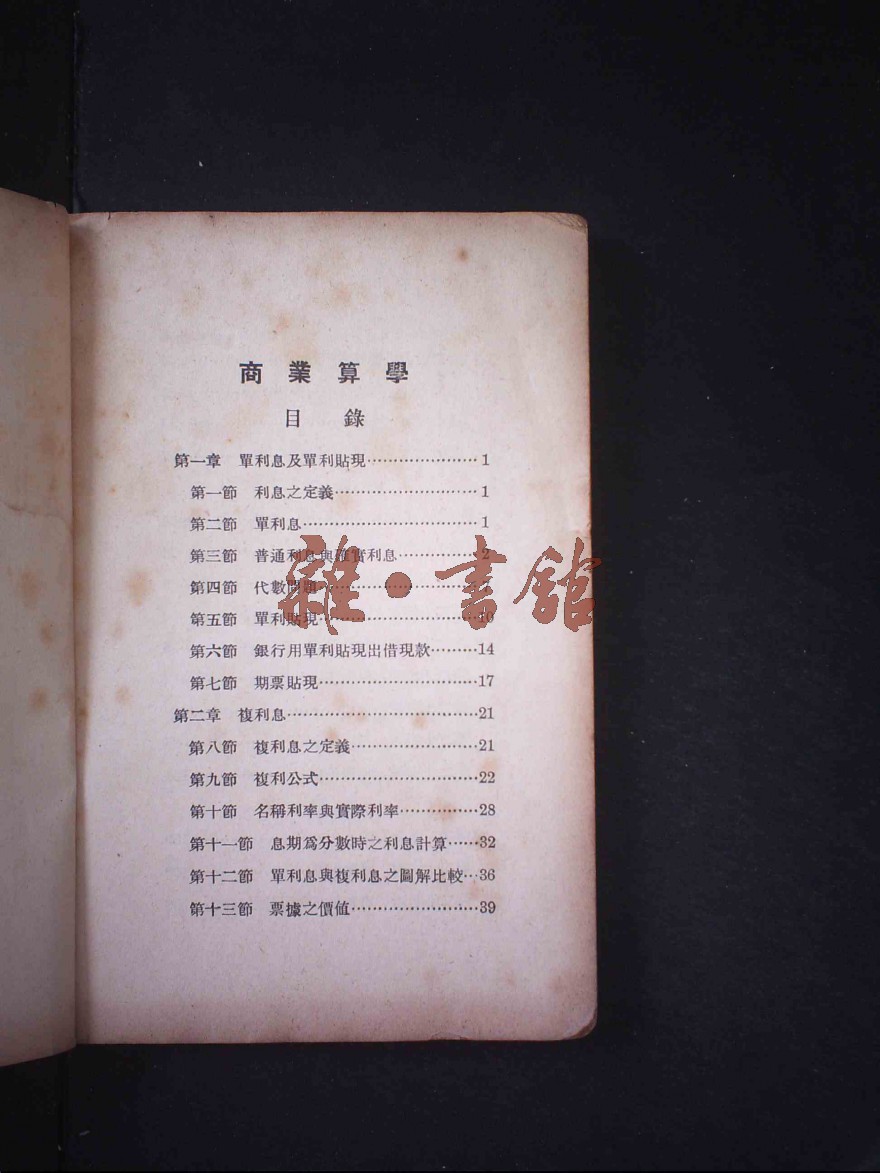 商業算學
目錄
第一章 單利息及單利貼現…………………1
第一節 利息之定義………………………1
第二節 單利息……………………………1
第三節 普通利息與確實利息……………2
第四節 代數問題…………………………
第五節 單利貼現…………………………10
第六節 銀行用單利貼現出借現款………14
第七節 期票貼現…………………………17
第二章 複利息………………………………21
第八節 複利息之定義……………………21
第九節 複利公式…………………………22
第十節 名稱利率與實際利率……………28
第十一節 息期爲分數時之利息計算……32
第十二節 單利息與複利息之圖解比較…36
第十三節 票據之價值……………………39
雜·書館